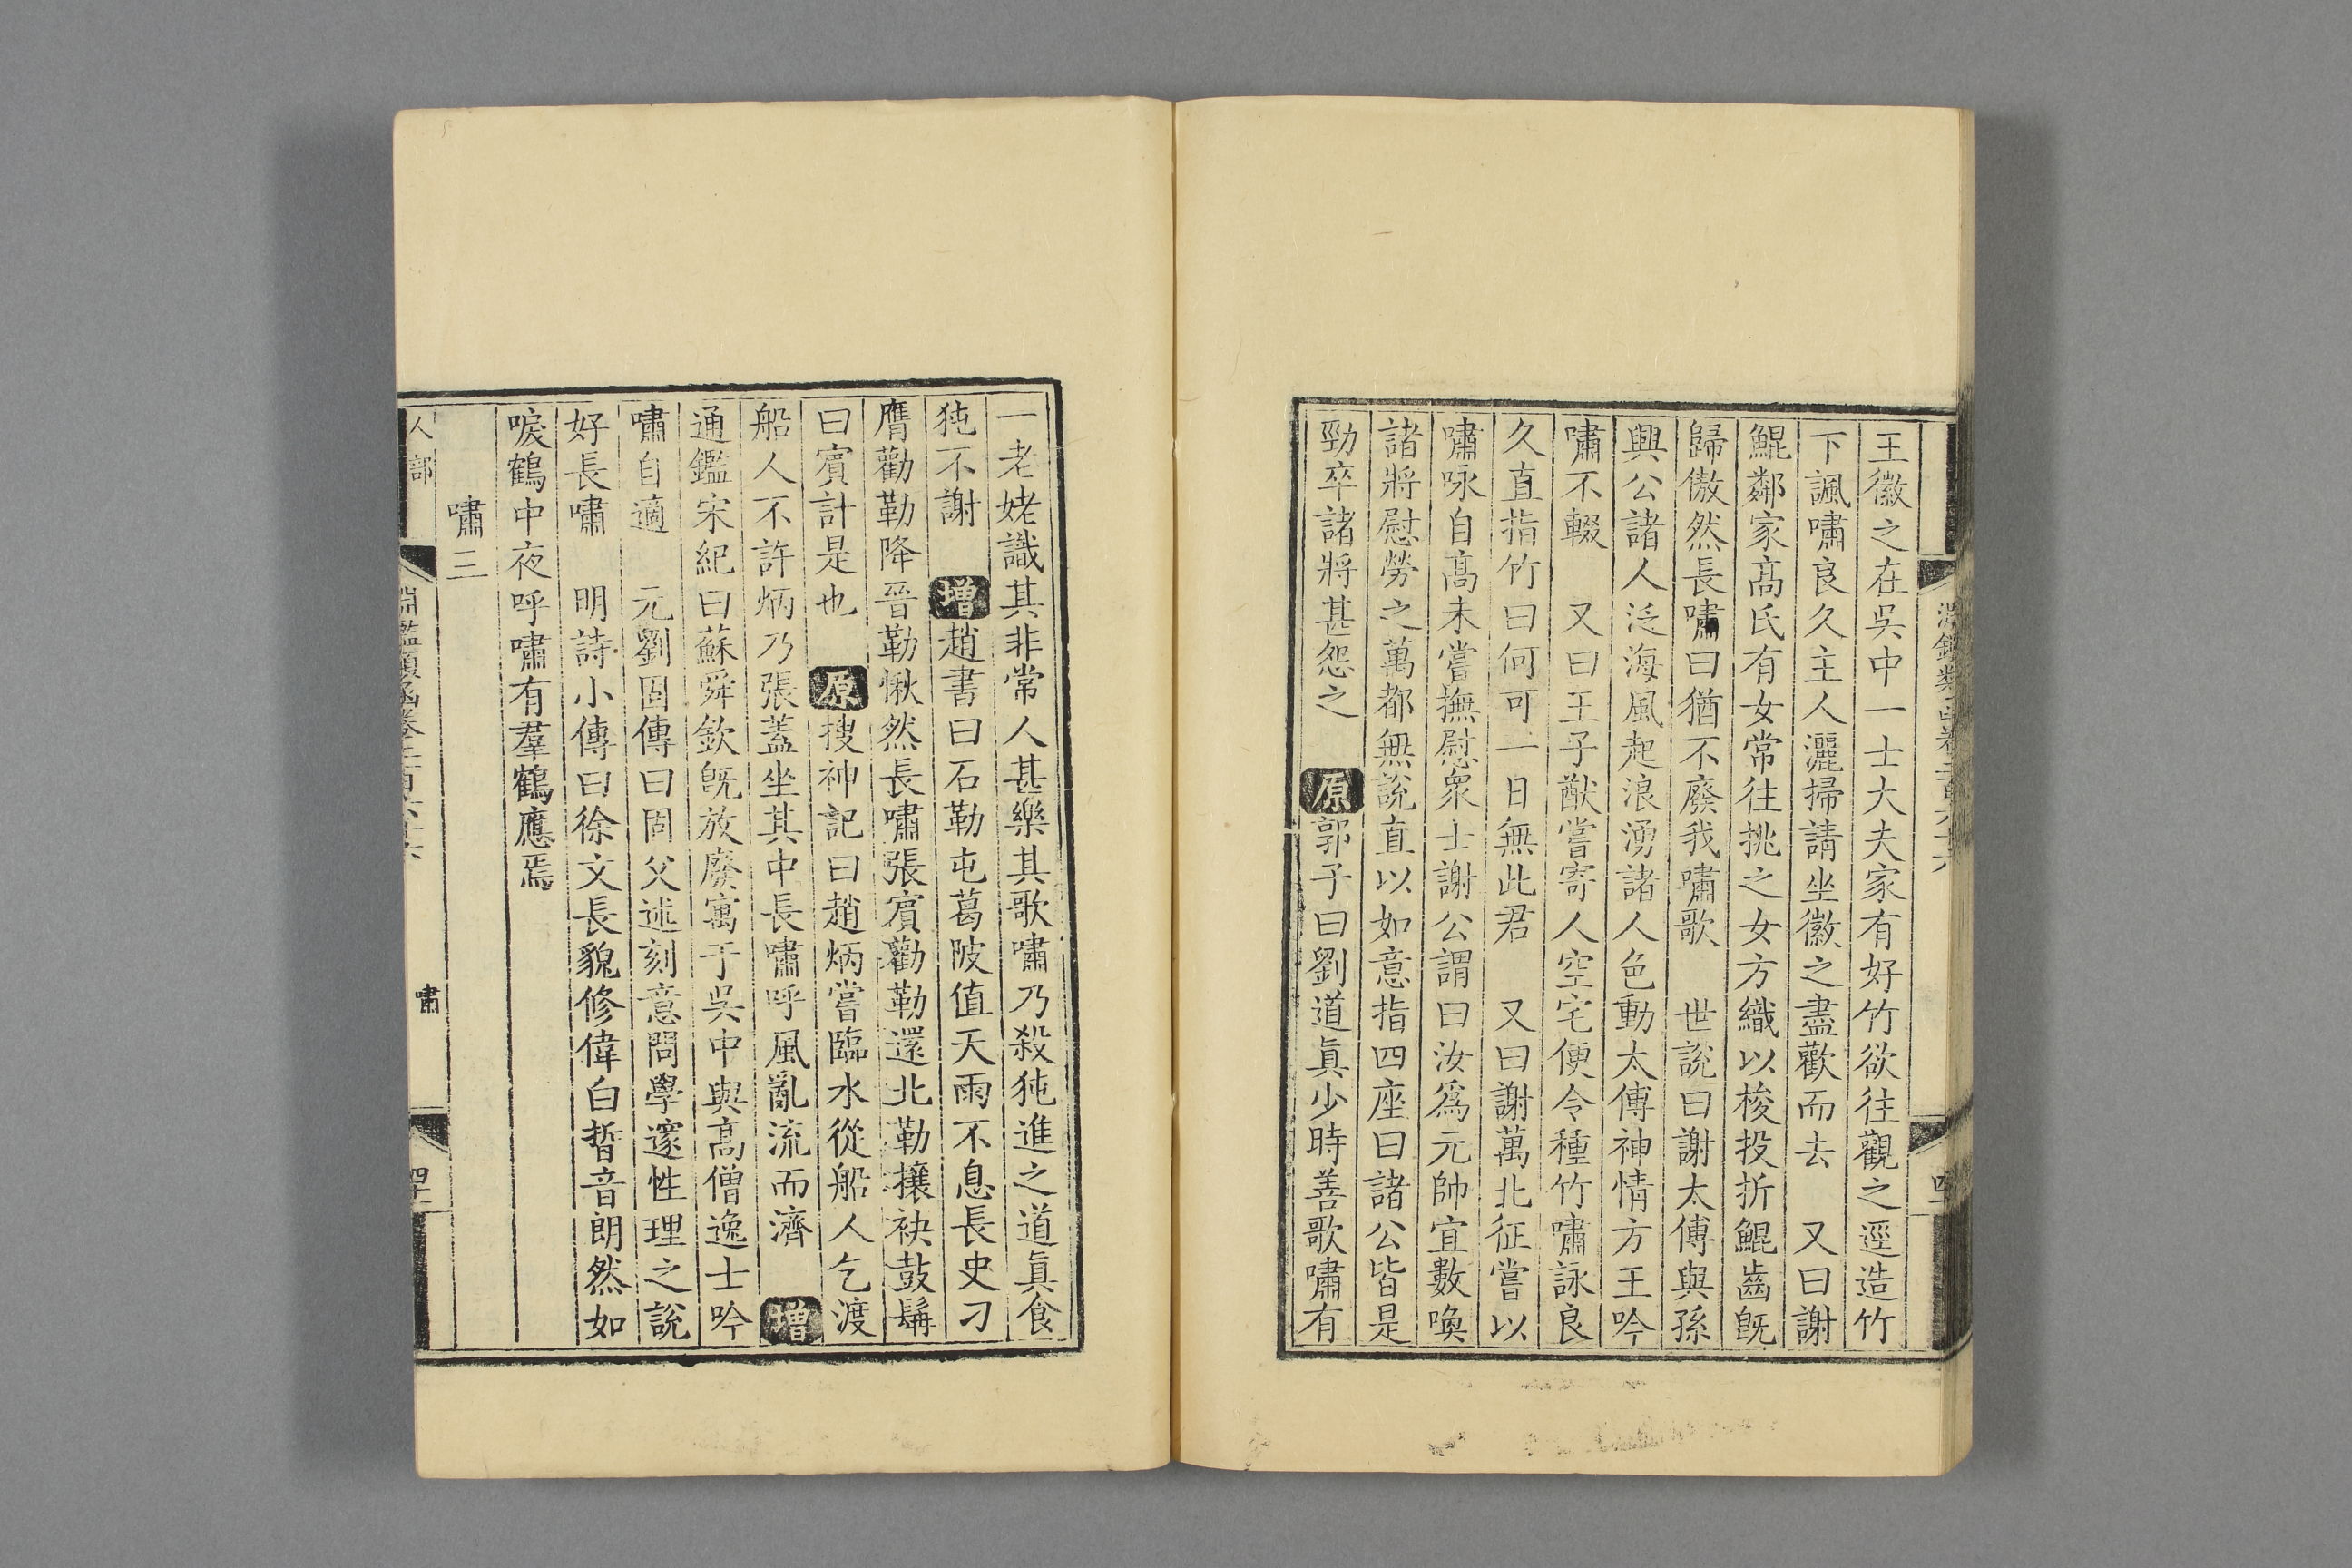 王徽之在吳中一士大夫家有好竹欲往觀之逕造竹
下諷嘯良久主人灑掃請坐徽之盡歡而去　又曰謝
鯤鄰家高氏有女常往挑之女方織以梭投折鯤齒旣
歸傲然長嘯曰猶不廢我嘯歌　世說曰謝太傅與孫
興公諸人泛海風起浪湧諸人色動太傅神情方王吟
嘯不輟　又曰王子猷嘗寄人空宅便令種竹嘯詠良
久直指竹曰何可一日無此君　又曰謝萬北征嘗以
嘯咏自高未嘗撫慰衆士謝公謂曰汝爲元帥宜數喚
諸將慰勞之萬都無說直以如意指四座曰諸公皆是
勁卒諸將甚怨之　原郭子曰劉道眞少時善歌嘯有
一老姥識其非常人甚樂其歌嘯乃殺㹠進之道眞食
㹠不謝　增趙書曰石勒屯葛陂值天雨不息長史刁
膺勸勒降晉勒愀然長嘯張賔勸勒還北勒攘袂鼓髯
曰賔計是也　原搜神記曰趙炳嘗臨水從船人乞渡
船人不許炳乃張蓋坐其中長嘯呼風亂流而濟　增
通鑑宋紀曰蘇舜欽旣放廢寓于吳中與高僧逸士吟
嘯自適　元劉因傳曰因父述刻意問學邃性理之說
好長嘯　明詩小傳曰徐文長貌修偉白晳音朗然如
唳鶴中夜呼嘯有羣鶴應焉
嘯三
人部　淵鑑類函卷二百六十六　嘯